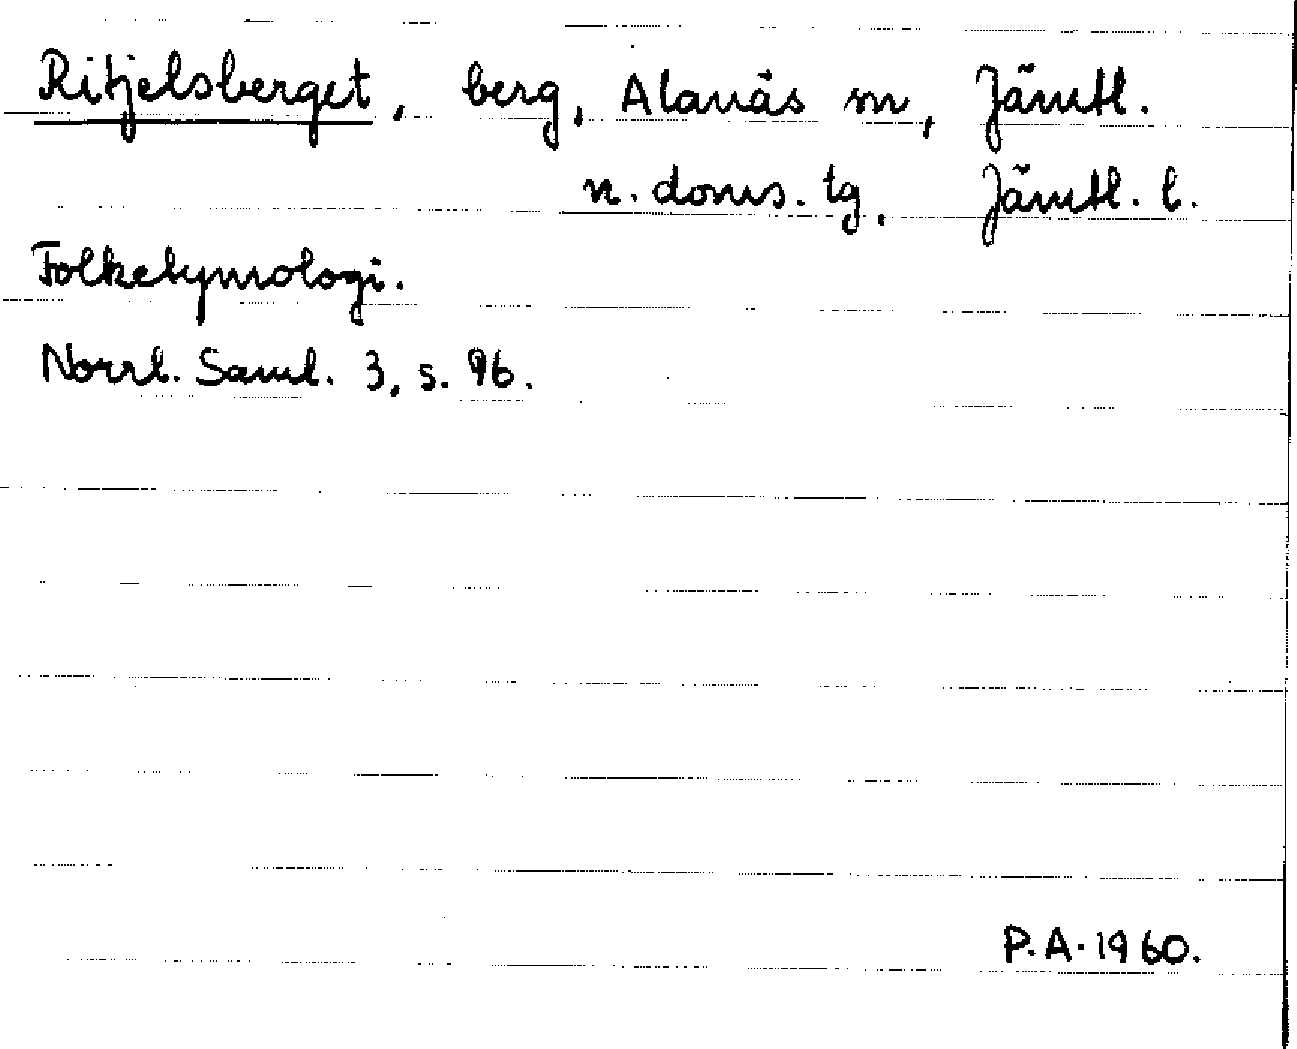 Ritjelsberget, berg, Alanäs sn, Jämtl.
n. doms. tg, Jämtl. l.
Folketymologi.
Norrl. Saml. 3, s. 96.
P.A. 1960.